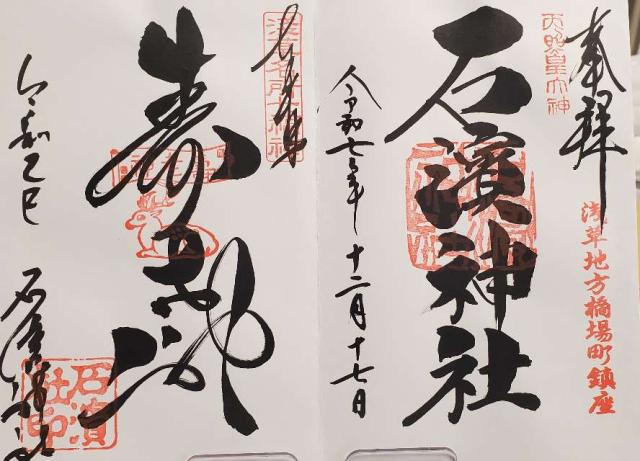 奉拝
天照皇大神
浅草地方橋場町鎮座
石濱神社
令和七年十二月十七日
奉拝
浅草名所七福神
寿老神
令和乙巳
石濱神社
石濱
社印